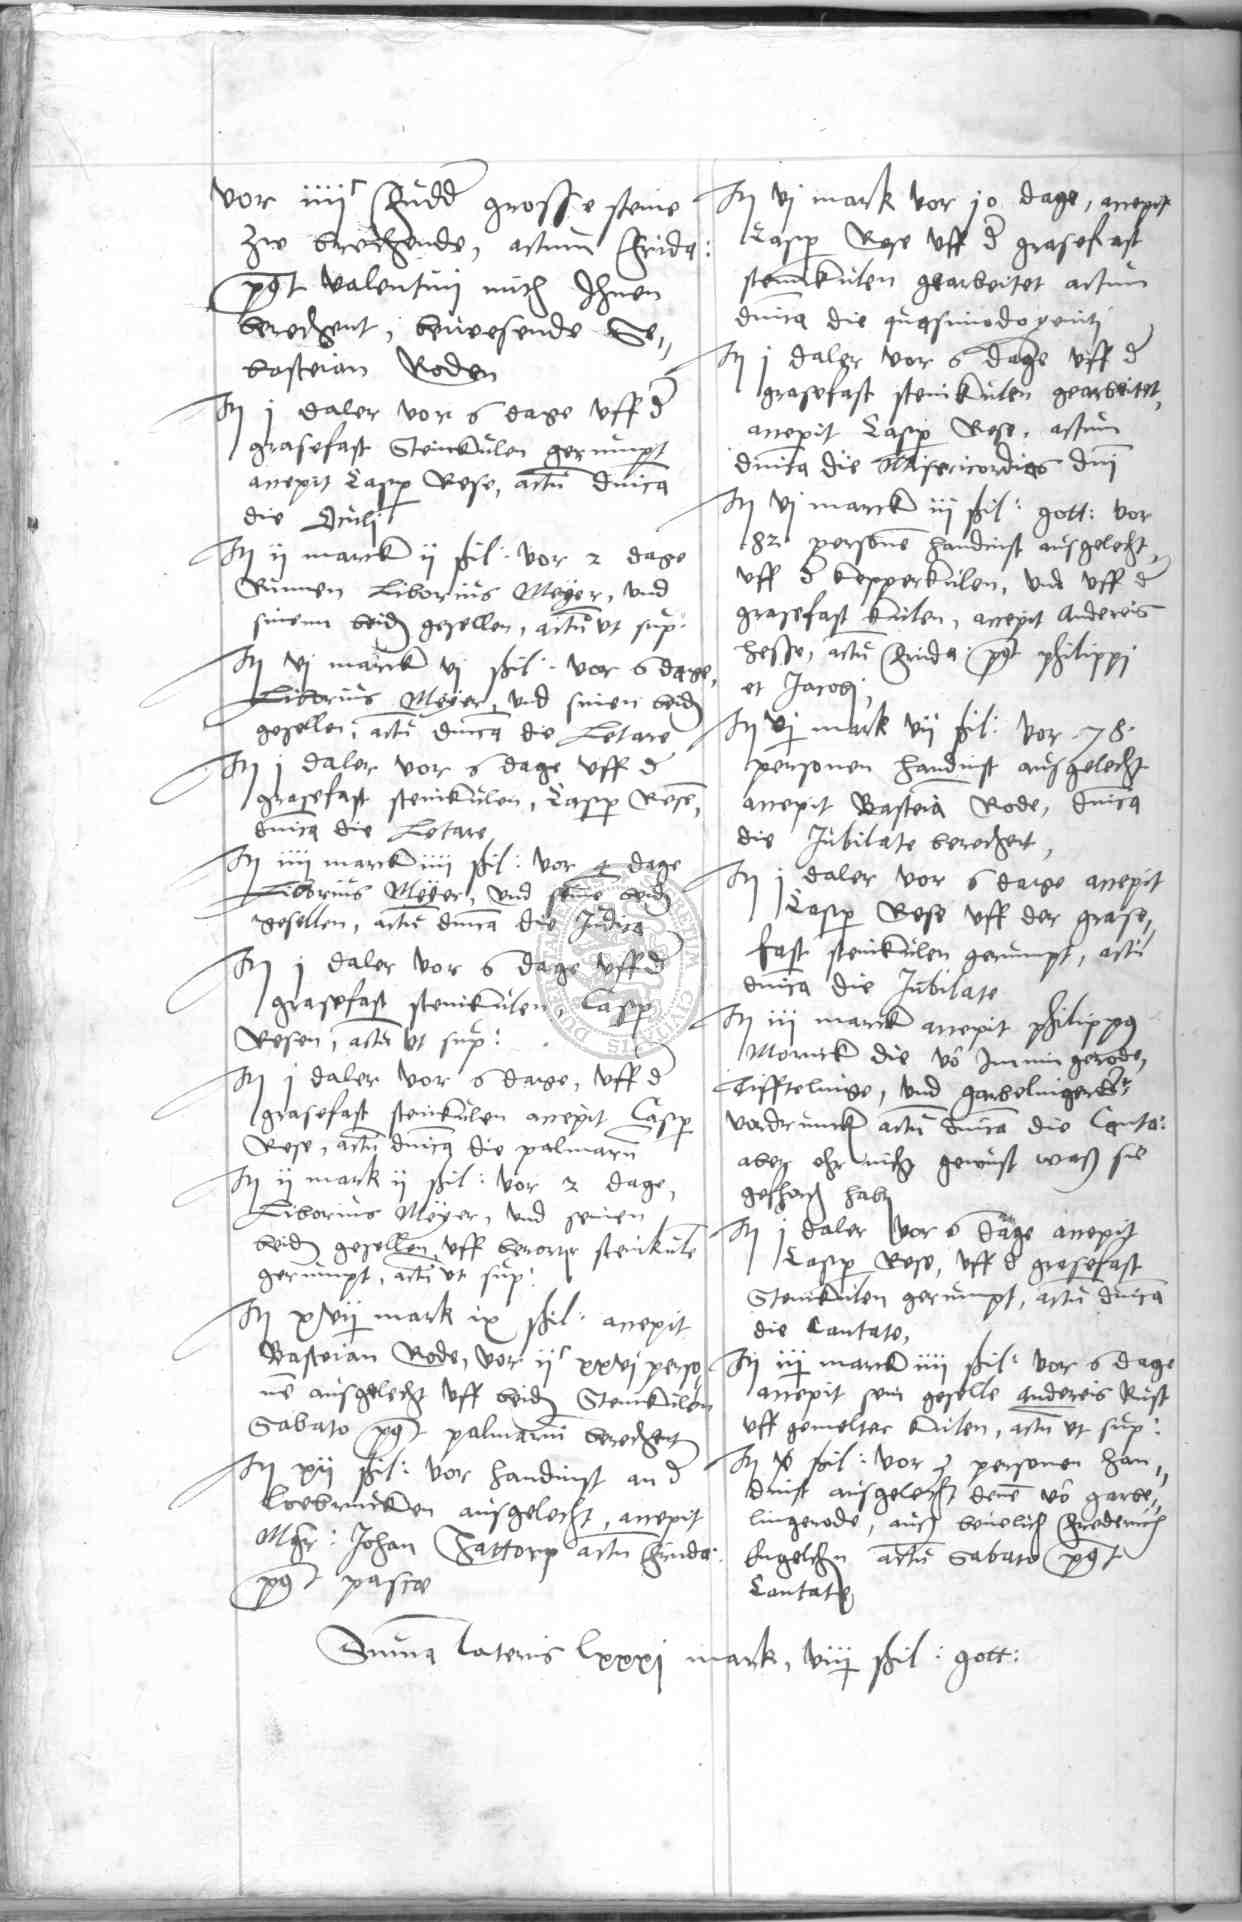 vor iiiiᶜ Fudd grosse steine
zw brechende, actum Frida:
post Valentini mich Ihnen
berechent, beiwesende Se„
basteian Roden
Itm j daler vor 6 dage vff d
grasefast Steinkulen gerumpt
accepit Casp Rese, actu dnica
die Oculi
Itm ij marck ij ßhil: vor 2 dage
Liborius Meyer, vnd
sinenn beidn gesellen, actu vt sup:
Itm vj marck vj ßhil: vor 6 dage,
Liborius Meyer, vnd sinen beidn
gesellen, actu dnica die Letare
Itm j daler vor 6 dage vff d
grasefast steinkulen, Casp Resen,
dnica die Letare
Itm iiij marck iiij ßhil: vor 4 dage
Liborius Meyer, vnd seine beidn
gesellen, actu dnica die Judica
Itm j daler vor 6 dage vff d
grasefast steinkulen, Casp
Resen, actu vt sup:
Itm j daler vor 6 dage, vff d
grasefast steinkulen accepit Casp
Rese, actu dnica die palmaru
Itm ij mark ij ßhil: vor 2 dage,
Liborius Meyer, vnd seinen
beidn gesellen, vff berorter steinkule
gerumpt, actu vt sup:
Itm xvij mark ix ßhil: accepit
Basteian Rode, vor ijᶜ xxvi perso
ne ausgelecht vff beidn Steinkulen
Sabato post palmarum berechent
Itm xij ßhil: vor handinst an d
bruicken ausgelecht, accepit
Mgr: Johan Hattorp actu Frida:
post pasce
Itm vj mark vor 10 dage, accepit
Casp Rese vff d grasefast
steinnkulen gearbeitet actum
dnica die quasimodogeniti
Itm j daler vor 6 dage vff d
grasefast steinkulen gearbeitet,
accepit Casp Rese, actum
dnica die Misericordias dni
Itm vj marck iij ßhil: gott: vor
82 persone handinst ausgelecht,
vff d kepperkulen, vnd vff d
grasefast kulen, accepit Andereis
Hesse, actu Frida: post philippi
et Jacobi,
Itm vj mark vij ßhil: vor 78
personen handinst ausgelecht
accepit Basteia Rode, dnica
die Jubilate berechent,
Itm j daler vor 6 dage accepit
Casp Rese vff der grase„
fast steinkulen gerumpt, actu
dnica die Jubilate
Itm iij marck accepit philippus
die vo Immingerode,
vnd
vordruncken actu dnica die Canta:
aber ehr nicht gewust waß sie
habn
Itm j daler vor 6 dage accepit
Casp Rese, vff d grasefast
Steinkulen gerumpt, actu dnica
die Cantate,
Itm iij marck iiij ßhil: vor 6 dage
accepit sein geselle andereis Rust
vff gemelter kulen, actu vt sup:
Itm ßhil: vor 3 personen han„
dinst ausgelecht denē vō garbe„
lingerode, auch beuelich Frederich
Engelhen actu Sabato post
Cantate
Suma lateris lxxxj mark, viij ßhil: gott: